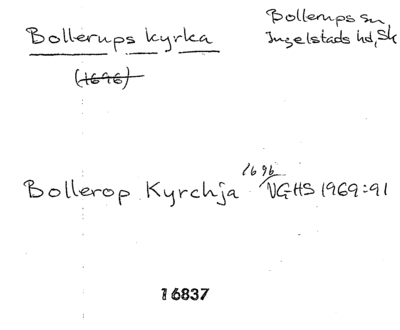 Bollerups kyrka
(1696)
Bollerups sn
Ingelstads hd, Sk
1696
Bollerop Kyrchja VGHS 1969:91
16837